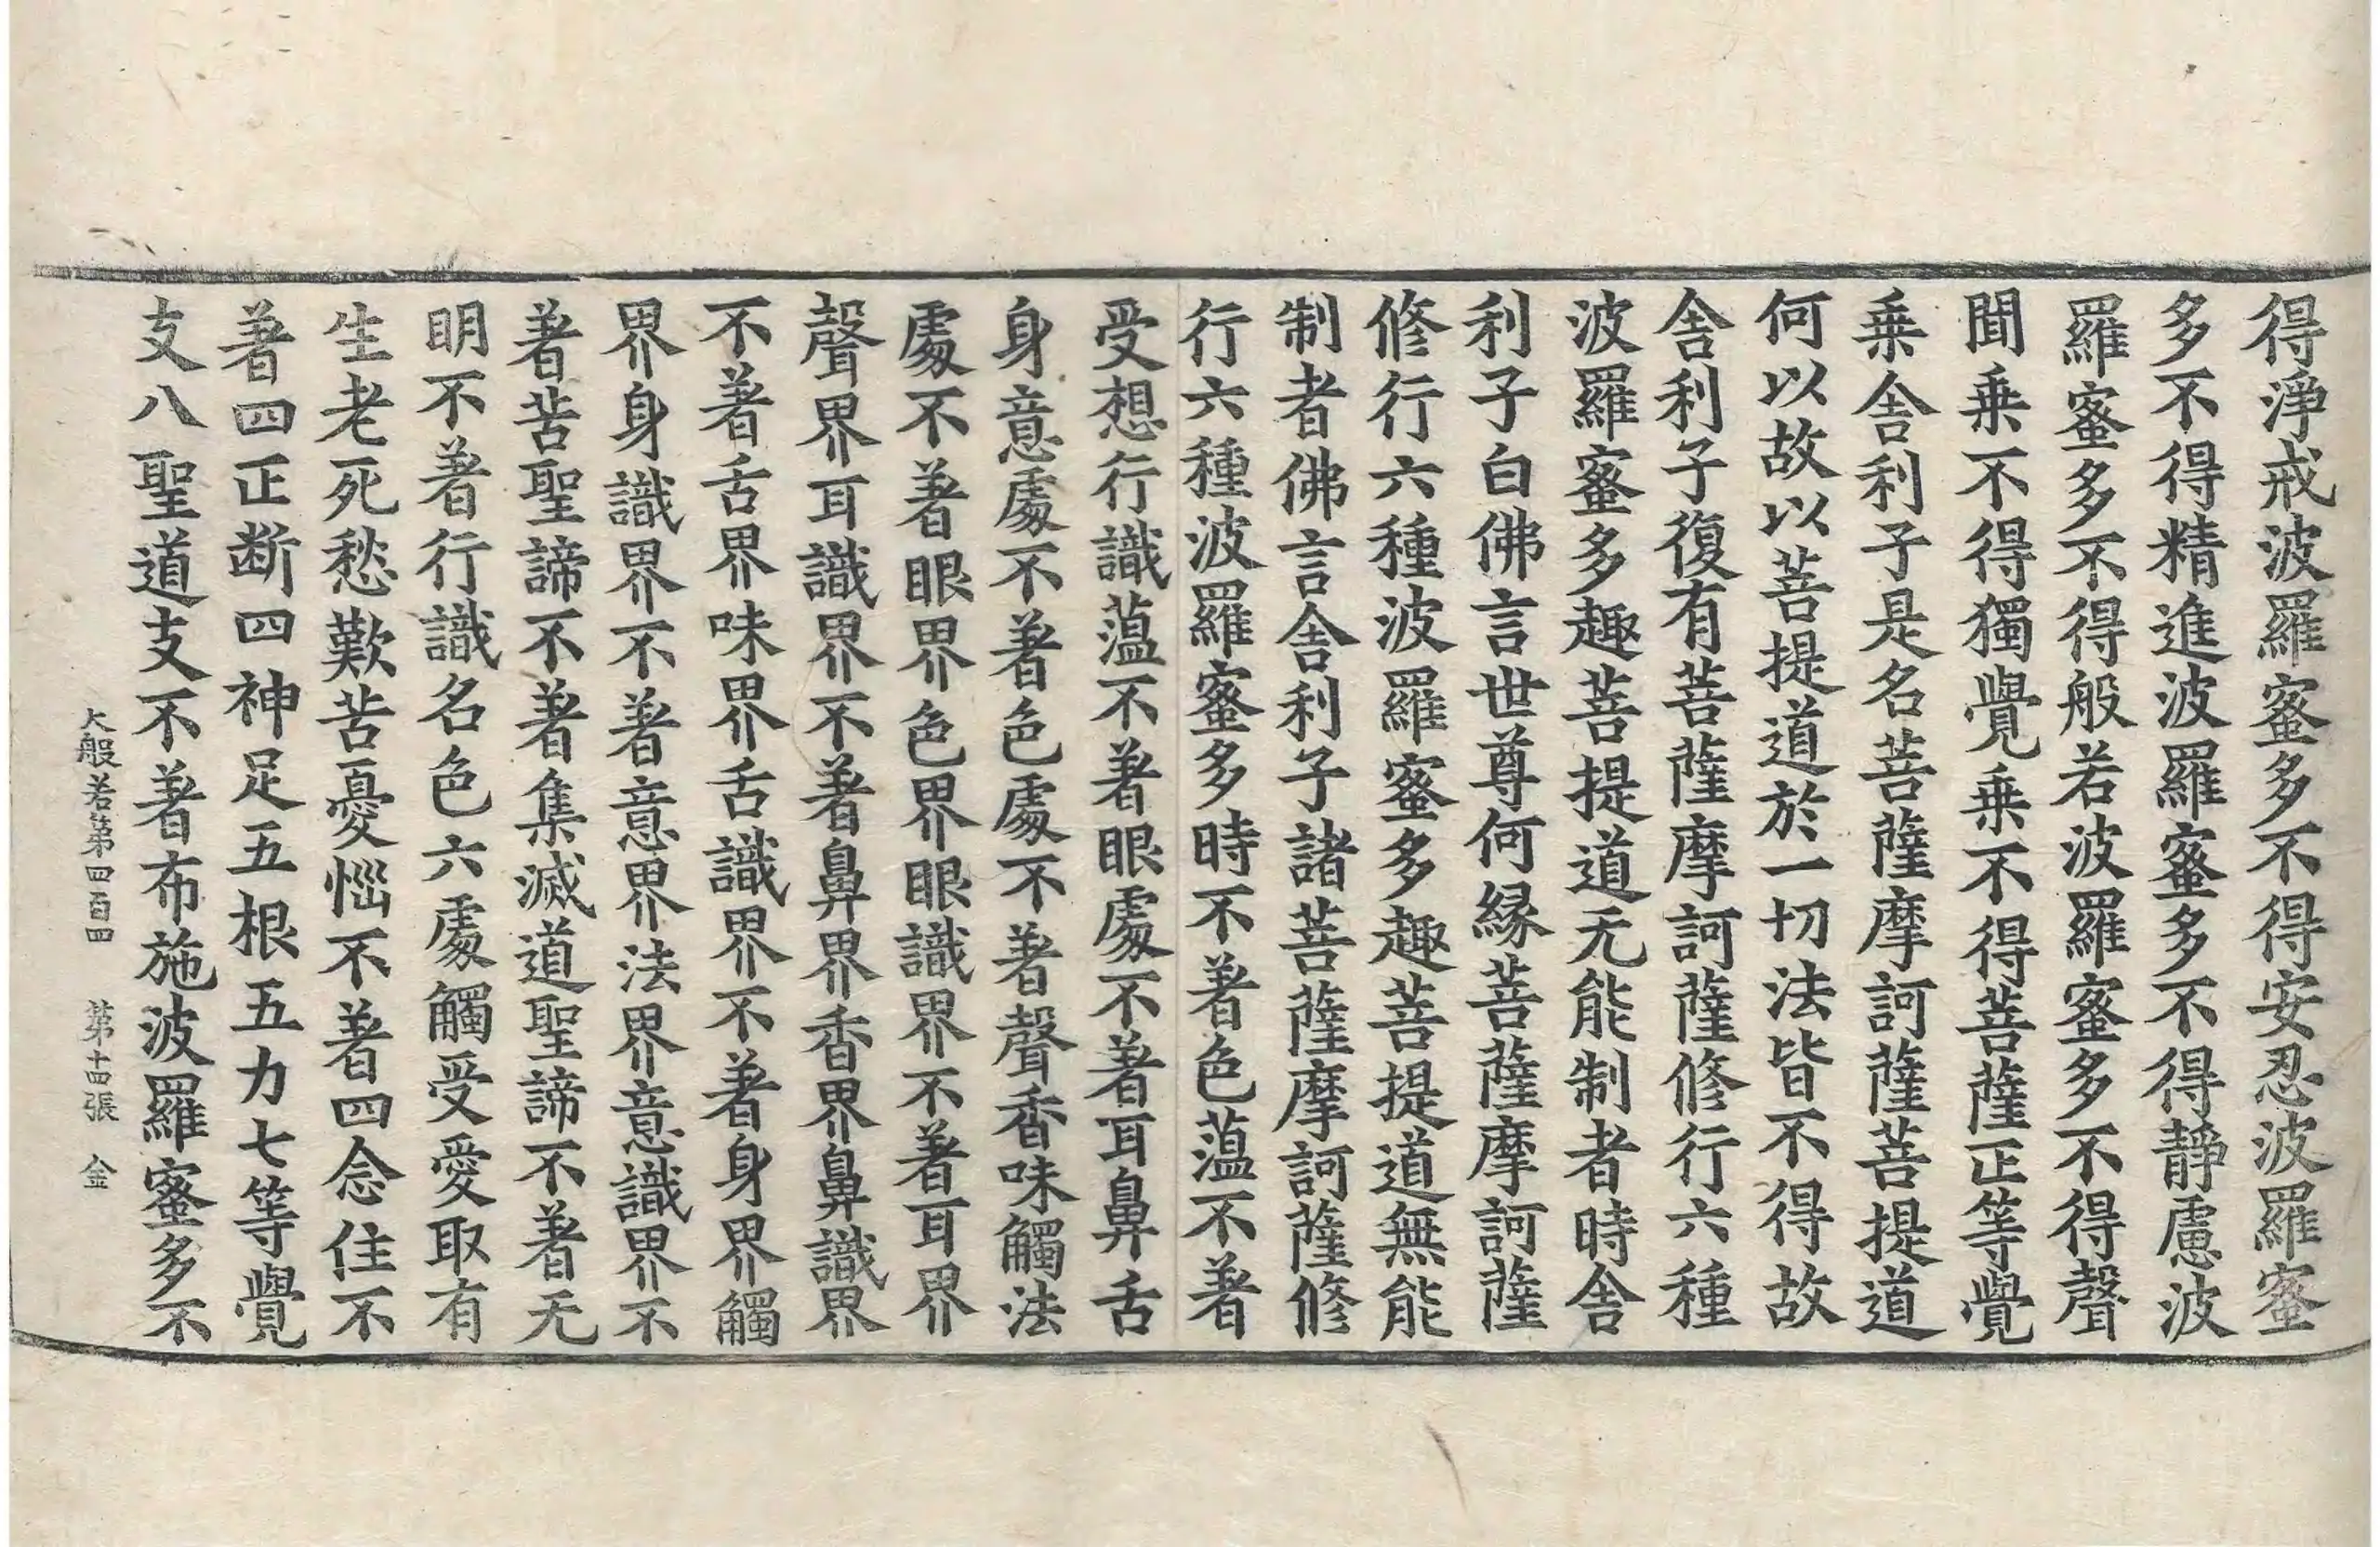 得淨戒波羅蜜多不得安忍波羅蜜
多不得精進波羅蜜多不得靜慮波
羅蜜多不得般若波羅蜜多不得聲
聞乗不得獨覺乗不得菩薩正等覺
乗舎利子是名菩薩摩訶薩菩提道
何以故以菩提道於一切法皆不得故
舎利子復有菩薩摩訶薩修行六種
波羅蜜多趣菩提道无能制者時舎
利子白佛言世尊何縁菩薩摩訶薩
修行六種波羅蜜多趣菩提道無能
制者佛言舎利子諸菩薩摩訶薩修
行六種波羅蜜多時不著色薀不著
受想行識薀不著眼處不著耳鼻舌
身意處不著色處不著聲香味觸法
處不著眼界色界眼識界不著耳界
聲界耳識界不著鼻界香界鼻識界
不著舌界味界舌識界不著身界觸
界身識界不著意界法界意識界不
著苦聖諦不著集滅道聖諦不著无
明不著行識名色六處觸受愛取有
生老死愁歎苦憂惱不著四念住不
著四正断四神足五根五力七等覺
支八聖道支不著布施波羅蜜多不
大般若第四百四 第十四張 金